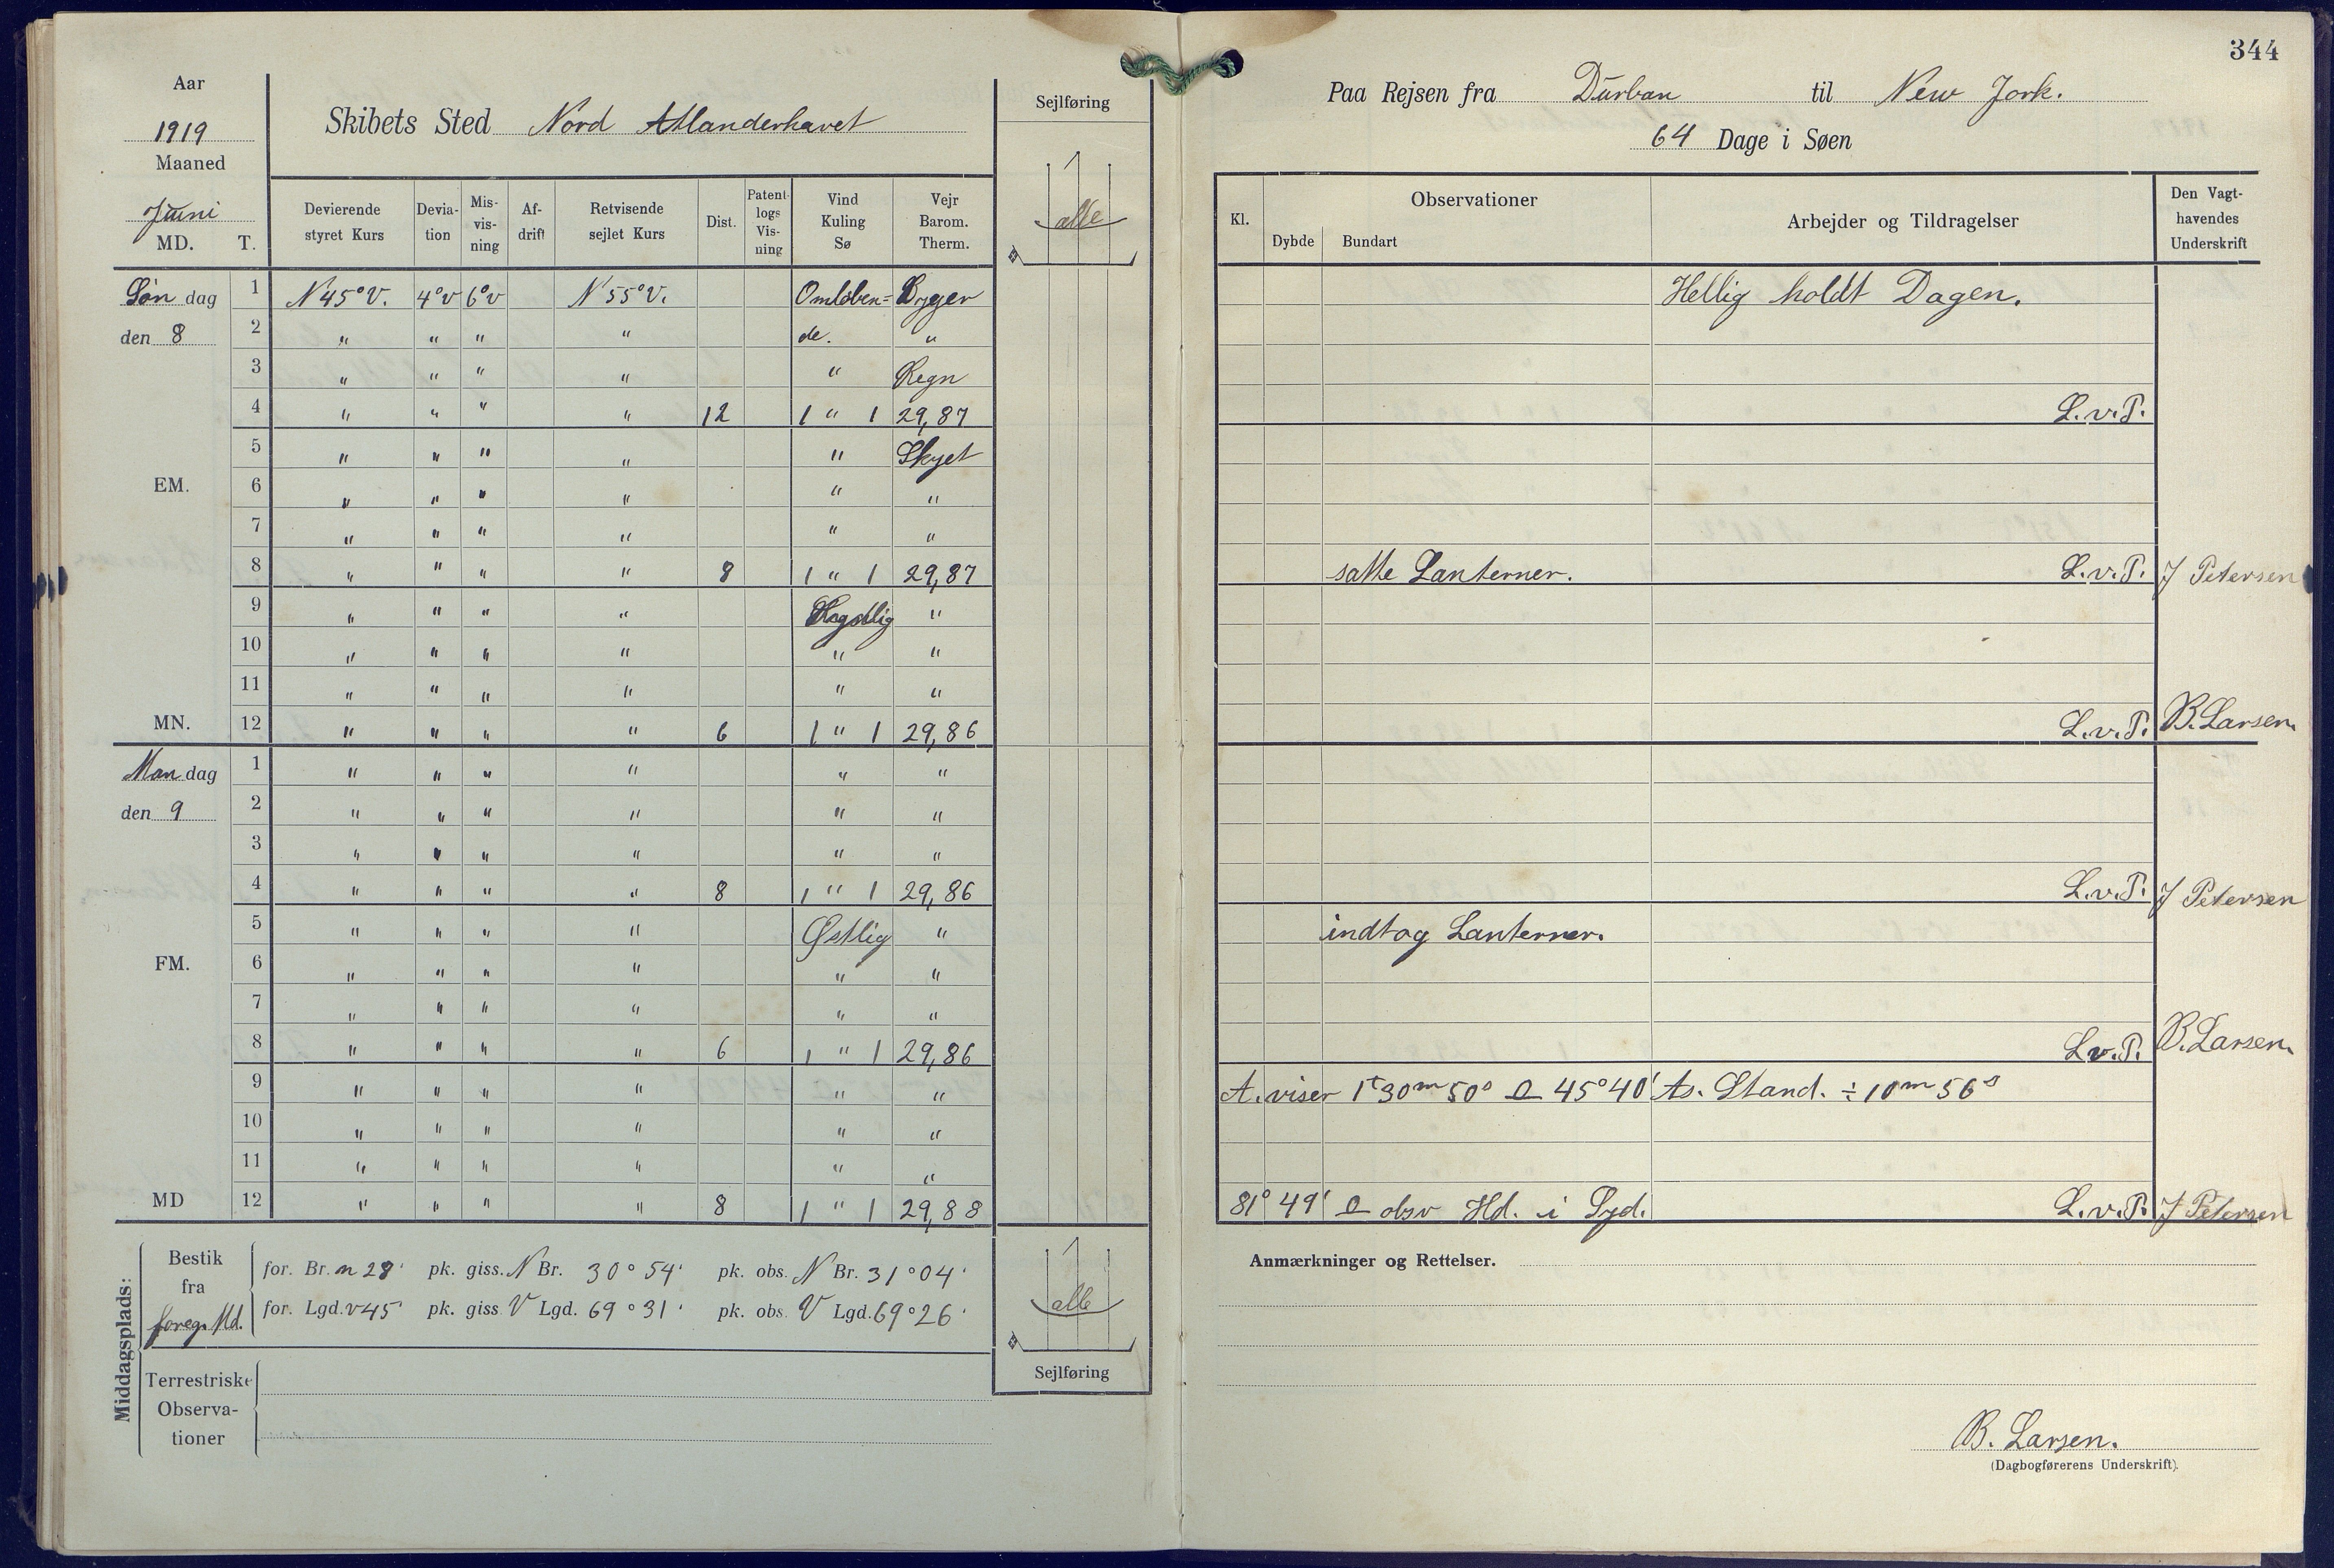 344
Aar
1919
Maaned
Juni
MD. T.
Skibets Sted Nord Atlanderhavet
Sejlføring
alle
Devierende styret Kurs
Devia-tion
Mis-vis-ning
Af-drift
Retvisende sejlet Kurs
Dist.
Patent-logs Vis-ning
Vind Kuling Sø
Vejr Barom. Therm.
Søndag 1 N 45° V. 4° v 6° v N 55° V. Omløben= Byger
den 8 2 " " " " de. "
3 " " " " " Regn
4 " " " " 12 1 " 1 29,87
5 " " " " " Skyet
EM. 6 " " " " " "
7 " " " " " "
8 " " " " 8 1 " 1 29,87
9 " " " " "
10 " " " " " "
11 " " " " " "
MN. 12 " " " " 6 1 " 1 29,86
Mandag 1 " " " " " "
den 9 2 " " " " " "
3 " " " " " "
4 " " " " 8 1 " 1 29,86
5 " " " " Østlig "
FM. 6 " " " " " "
7 " " " " " "
8 " " " " 6 1 " 1 29,86
9 " " " " " "
10 " " " " " "
11 " " " " " "
MD 12 " " " " 8 1 " 1 29,88
Middagsplads:
Bestik fra foreg. Md.
for. Br. n 28' pk. giss. N Br. 30° 54' pk. obs. N Br. 31° 04'
for. Lgd. v 45' pk. giss. V Lgd. 69° 31' pk. obs. V Lgd. 69° 26'
Terrestriske Observa-tioner
alle
Sejlføring
Paa Rejsen fra Durban til New Jork.
64 Dage i Søen
Kl.
Observationer
Dybde Bundart
Arbejder og Tildragelser
Den Vagt-havendes Underskrift
Hellig holdt Dagen.
L.v.P.
satte Lanterner. L.v.P. J Petersen
L.v.P. B. Larsen.
L.v.P. J Petersen
indtog Lanterner.
L.v.P. B. Larsen.
A. viser 1t 30m 50s 45° 40' As. Stand. ÷ 10m 56s
81° 49' obsv Hd. i Syd. L.v.P. J Petersen
Anmærkninger og Rettelser.
B. Larsen.
(Dagbogførerens Underskrift).